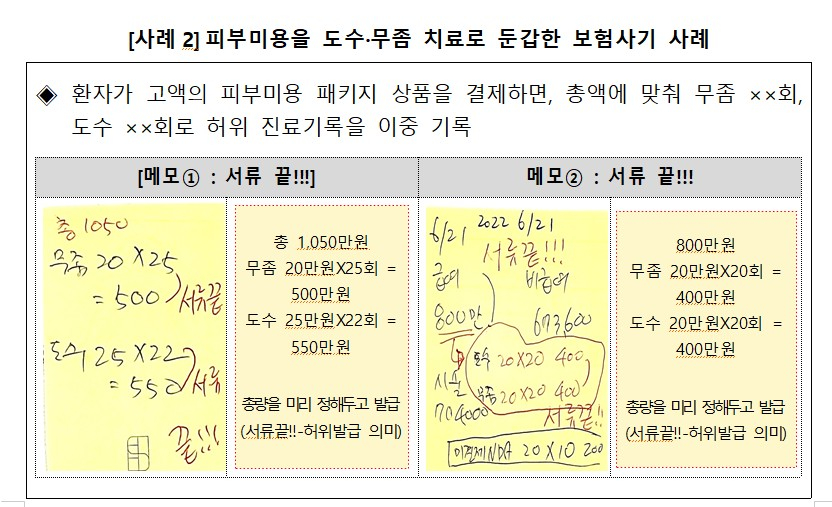 [사례 2] 피부미용을 도수·무좀 치료로 둔갑한 보험사기 사례
◈ 환자가 고액의 피부미용 패키지 상품을 결제하면, 총액에 맞춰 무좀 ××회,
도수 ××회로 허위 진료기록을 이중 기록
[메모① : 서류 끝!!!]
총 1050
무좀 20 X 25
= 500
서류끝
도수 25 X 22
= 550
서류
끝!!!
총 1,050만원
무좀 20만원X25회 =
500만원
도수 25만원X22회 =
550만원
총량을 미리 정해두고 발급
(서류끝!!-허위발급 의미)
메모② : 서류 끝!!!
6/21 2022 6/21
서류끝!!!
급여 비급여
800만 673,600
도수 20X20 400
무좀 20X20 400
서류끝!!
20 X 10 200
800만원
무좀 20만원X20회 =
400만원
도수 20만원X20회 =
400만원
총량을 미리 정해두고 발급
(서류끝!!-허위발급 의미)